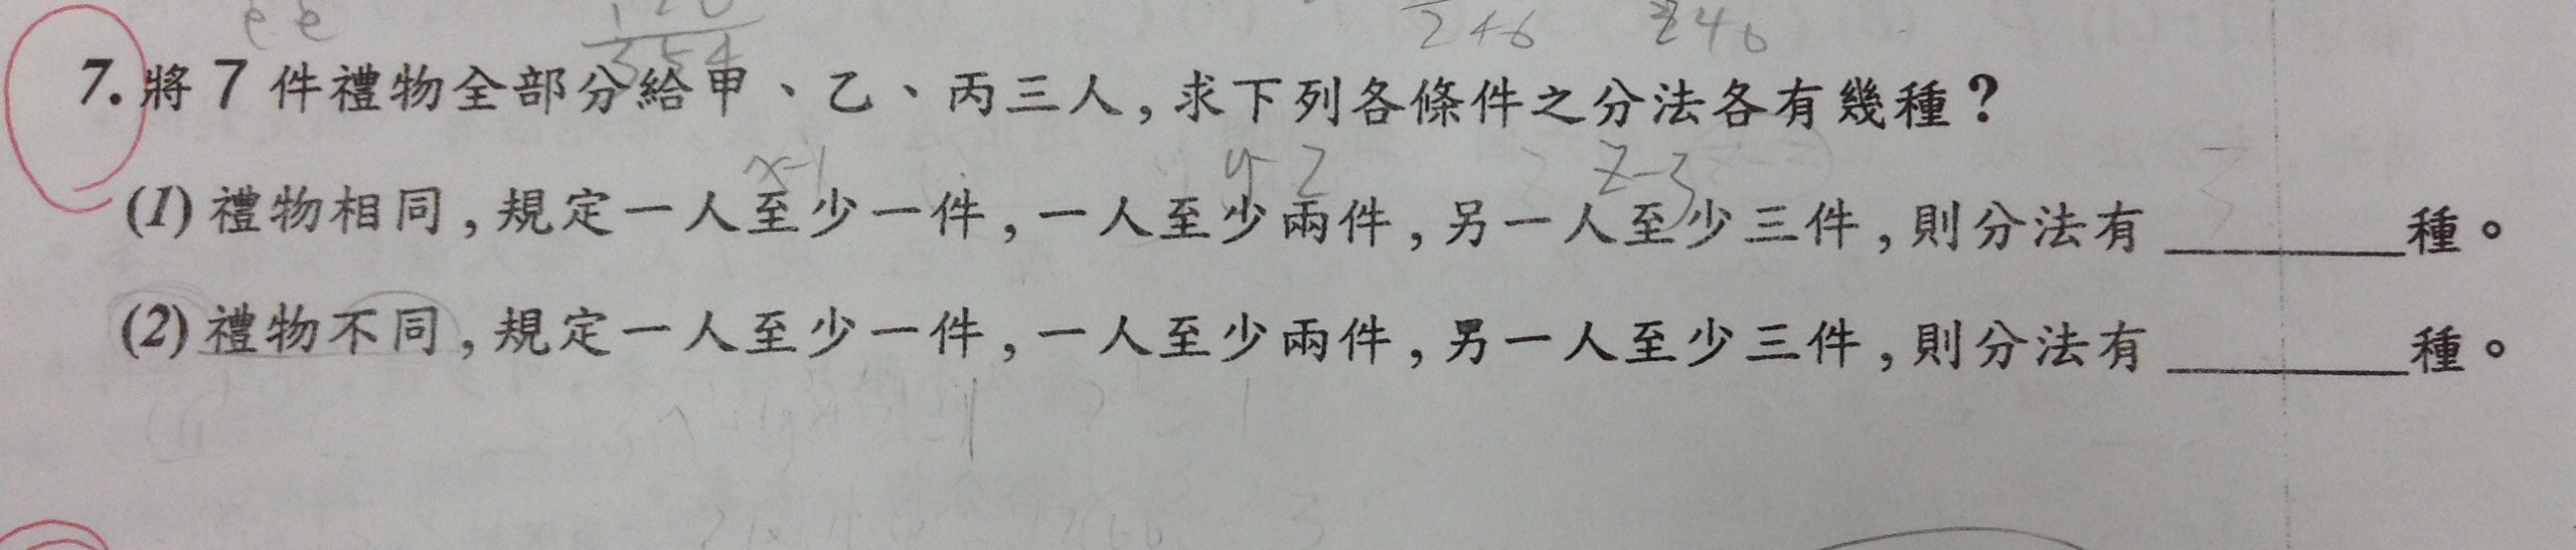 e e 120
354
2+6 246
7. 將 7 件禮物全部分給甲、乙、丙三人,求下列各條件之分法各有幾種?
x-1 y-2 z-3
(1) 禮物相同,規定一人至少一件,一人至少兩件,另一人至少三件,則分法有________種。
(2) 禮物不同,規定一人至少一件,一人至少兩件,另一人至少三件,則分法有________種。